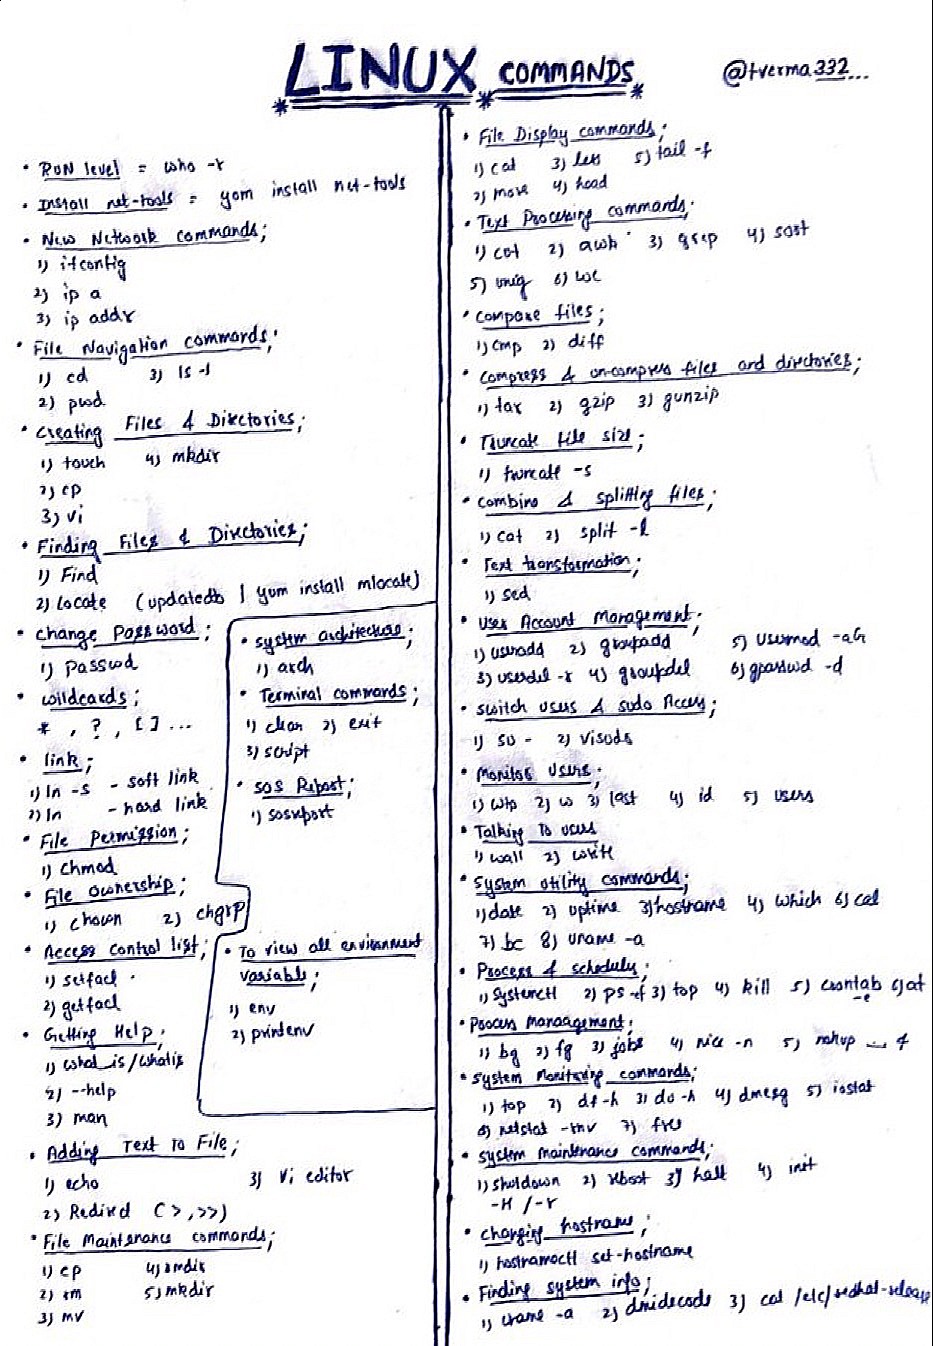 LINUX COMMANDS
@tverma332...
• RUN level = who -r
• Install net-tools = yum install net-tools
• New Network commands;
1) ifconfig
2) ip a
3) ip addr
• File Navigation commands;
1) cd 3) ls -l
2) pwd
• Creating Files & Directories;
1) touch 4) mkdir
2) cp
3) vi
• Finding Files & Directories;
1) Find
2) Locate (updatedb / yum install mlocate)
• Change Password;
1) Passwd
• wildcards;
* , ? , [ ] ...
• link;
1) ln -s - soft link
2) ln - hard link
• File Permission;
1) Chmod
• File ownership;
1) chown 2) chgrp
• Access control list;
1) setfacl
2) getfacl
• Getting Help;
1) what_is/whatis
2) --help
3) man
• System architecture;
1) arch
• Terminal commands;
1) clear 2) exit
3) script
• SOS Report;
1) sosreport
• To view all environment
variable;
1) env
2) printenv
• Adding Text To File;
1) echo 3) Vi editor
2) Redirect (>,>>)
• File Maintenance commands;
1) cp 4) rmdir
2) rm 5) mkdir
3) mv
• File Display commands;
1) cat 3) less 5) tail -f
2) more 4) head
• Text Processing commands;
1) cut 2) awk 3) grep 4) sort
5) uniq 6) wc
• Compare files;
1) cmp 2) diff
• Compress & un-compress files and directories;
1) tar 2) gzip 3) gunzip
• Truncate file size;
1) truncate -s
• Combine & splitting files;
1) cat 2) split -l
• Text transformation;
1) sed
• User Account Management;
1) useradd 2) groupadd 5) usermod -aG
3) userdel -r 4) groupdel 6) gpasswd -d
• switch users & sudo Access;
1) su - 2) visudo
• Monitor Users;
1) who 2) w 3) last 4) id 5) users
• Talking To users
1) wall 2) write
• System utility commands;
1) date 2) uptime 3) hostname 4) which 6) cal
7) bc 8) uname -a
• Process & schedule;
1) systemctl 2) ps -ef 3) top 4) kill 5) crontab 6) at
-e
• Process management;
1) bg 2) fg 3) jobs 4) nice -n 5) nohup
• System Monitoring commands;
1) top 2) df -h 3) du -h 4) dmesg 5) iostat
6) netstat -rnv 7) free
• System maintenance commands;
1) shutdown 2) reboot 3) halt 4) init
-H / -r
• Changing hostname;
1) hostnamectl set-hostname
• Finding system info;
1) uname -a 2) dmidecode 3) cat /etc/redhat-release